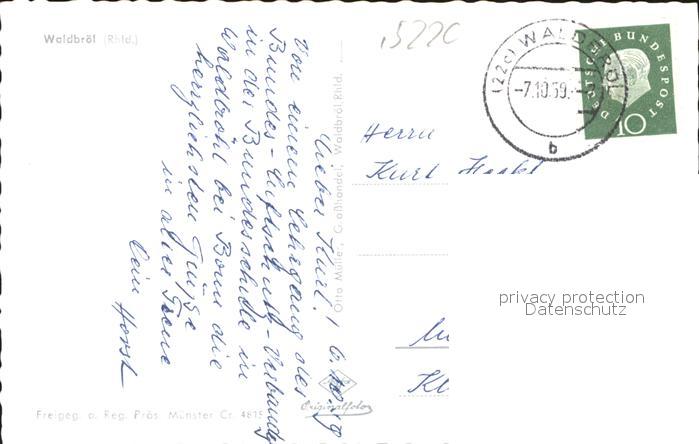 Waldbröl (Rhld.)
5220
(22c) WALDBRÖL
-7.10.59.-
b
DEUTSCHE BUNDESPOST
10
Herrn
Kurt Haakt
privacy protection
Datenschutz
Lieber Kurt!
Von einem Lehrgang des
Bundes-Luftschutz-Verbands
in der Bundesschule in
Waldbröhl bei Bonn die
herzlichsten Grüße
in alter Treue
Dein Horst
Otto Müller, Großhandel, Waldbröl Rhld.
Originalfoto
Freigeg. d. Reg. Präs. Münster Cr. 4815